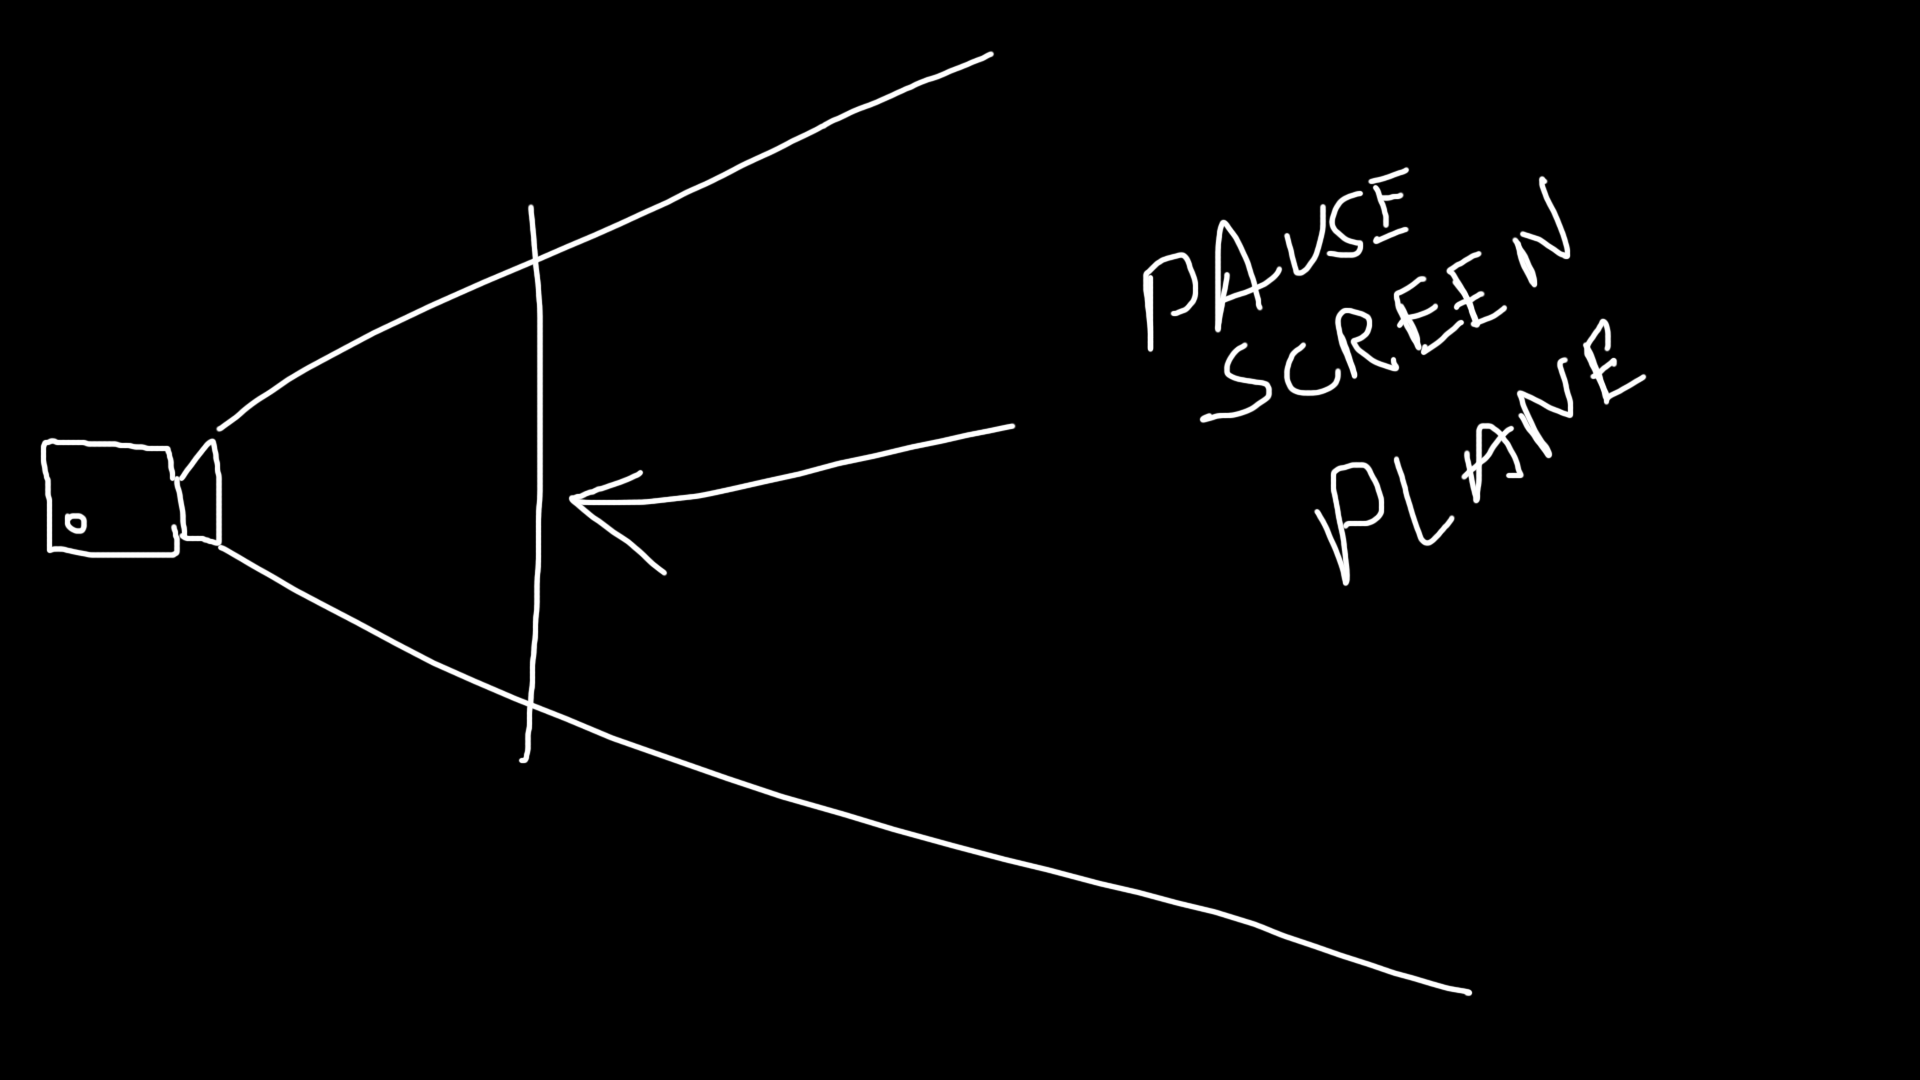 PAUSE
SCREEN
PLANE